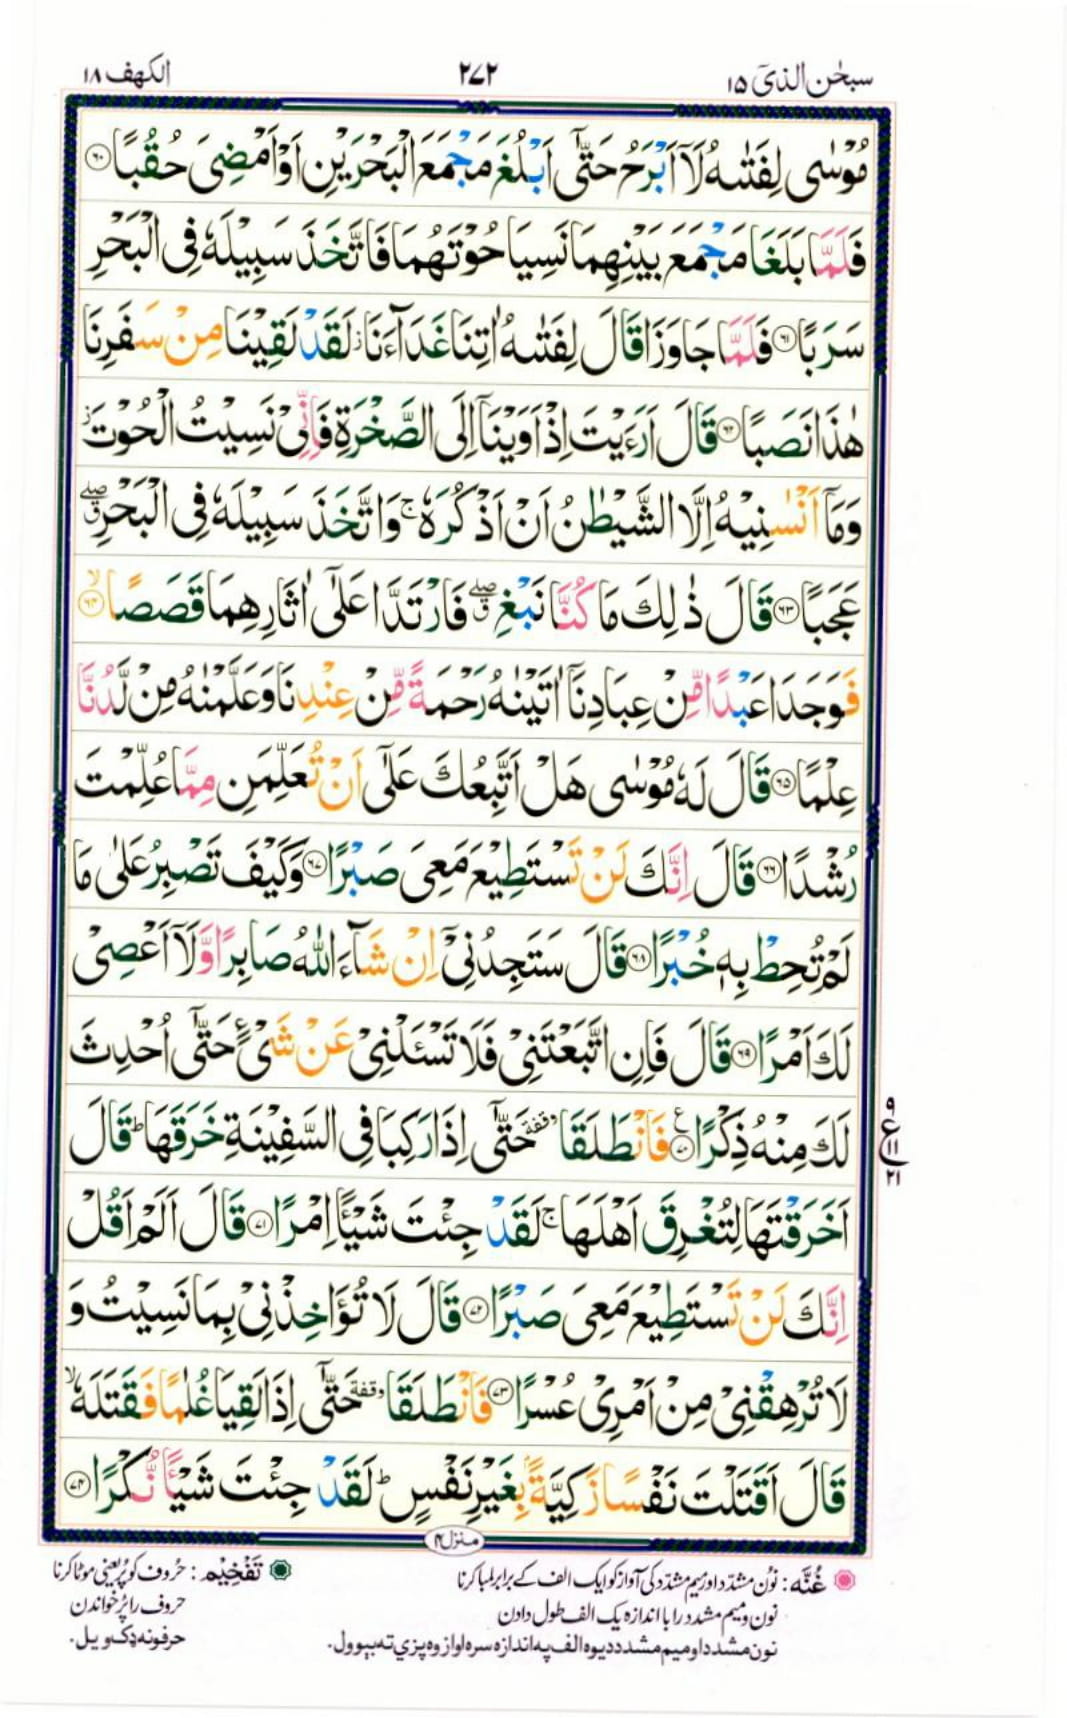 سبحٰن الذیٓ ۱۵
۲۷۲
الکهف ۱۸
مُوْسٰى لِفَتٰىهُ لَاۤ اَبْرَحُ حَتّٰۤى اَبْلُغَ مَجْمَعَ الْبَحْرَیْنِ اَوْ اَمْضِیَ حُقُبًا ۶۰
فَلَمَّا بَلَغَا مَجْمَعَ بَیْنِهِمَا نَسِیَا حُوْتَهُمَا فَاتَّخَذَ سَبِیْلَهٗ فِی الْبَحْرِ
سَرَبًا ۶۱ فَلَمَّا جَاوَزَا قَالَ لِفَتٰىهُ اٰتِنَا غَدَآءَنَا ز لَقَدْ لَقِیْنَا مِنْ سَفَرِنَا
هٰذَا نَصَبًا ۶۲ قَالَ اَرَءَیْتَ اِذْ اَوَیْنَاۤ اِلَى الصَّخْرَةِ فَاِنِّیْ نَسِیْتُ الْحُوْتَ ز
وَمَاۤ اَنْسٰىنِیْهُ اِلَّا الشَّیْطٰنُ اَنْ اَذْكُرَهٗ ج وَاتَّخَذَ سَبِیْلَهٗ فِی الْبَحْرِ ق صلے
عَجَبًا ۶۳ قَالَ ذٰلِكَ مَا كُنَّا نَبْغِ ق صلے فَارْتَدَّا عَلٰۤى اٰثَارِهِمَا قَصَصًا لا ۶۴
فَوَجَدَا عَبْدًا مِّنْ عِبَادِنَاۤ اٰتَیْنٰهُ رَحْمَةً مِّنْ عِنْدِنَا وَعَلَّمْنٰهُ مِنْ لَّدُنَّا
عِلْمًا ۶۵ قَالَ لَهٗ مُوْسٰى هَلْ اَتَّبِعُكَ عَلٰۤى اَنْ تُعَلِّمَنِ مِمَّا عُلِّمْتَ
رُشْدًا ۶۶ قَالَ اِنَّكَ لَنْ تَسْتَطِیْعَ مَعِیَ صَبْرًا ۶۷ وَكَیْفَ تَصْبِرُ عَلٰى مَا
لَمْ تُحِطْ بِهٖ خُبْرًا ۶۸ قَالَ سَتَجِدُنِیْۤ اِنْ شَآءَ اللّٰهُ صَابِرًا وَّلَاۤ اَعْصِیْ
لَكَ اَمْرًا ۶۹ قَالَ فَاِنِ اتَّبَعْتَنِیْ فَلَا تَسْـَٔلْنِیْ عَنْ شَیْءٍ حَتّٰۤى اُحْدِثَ
لَكَ مِنْهُ ذِكْرًا ع ۷۰ فَانْطَلَقَا وقفة حَتّٰۤى اِذَا رَكِبَا فِی السَّفِیْنَةِ خَرَقَهَا ط قَالَ
اَخَرَقْتَهَا لِتُغْرِقَ اَهْلَهَا ج لَقَدْ جِئْتَ شَیْـًٔا اِمْرًا ۷۱ قَالَ اَلَمْ اَقُلْ
اِنَّكَ لَنْ تَسْتَطِیْعَ مَعِیَ صَبْرًا ۷۲ قَالَ لَا تُؤَاخِذْنِیْ بِمَا نَسِیْتُ وَ
لَا تُرْهِقْنِیْ مِنْ اَمْرِیْ عُسْرًا ۷۳ فَانْطَلَقَا وقفة حَتّٰۤى اِذَا لَقِیَا غُلٰمًا فَقَتَلَهٗ لا
قَالَ اَقَتَلْتَ نَفْسًا زَكِیَّةًۢ بِغَیْرِ نَفْسٍ ط لَقَدْ جِئْتَ شَیْـًٔا نُّكْرًا ۷۴
۹
ع
۱۱
۲۱
منزل ۴
غُنَّه: نون مشدّد اور میم مشدّد کی آواز کو ایک الف کے برابر لمبا کرنا
نون و میم مشدد را با اندازه یک الف طول دادن
نون مشدد او میم مشدد دیوه الف په اندازه سره اواز وه پزي ته بیوول.
تَفْخِیْم: حُروف کو پُر یعنی موٹا کرنا
حروف را پُر خواندن
حرفونه ډک ویل.